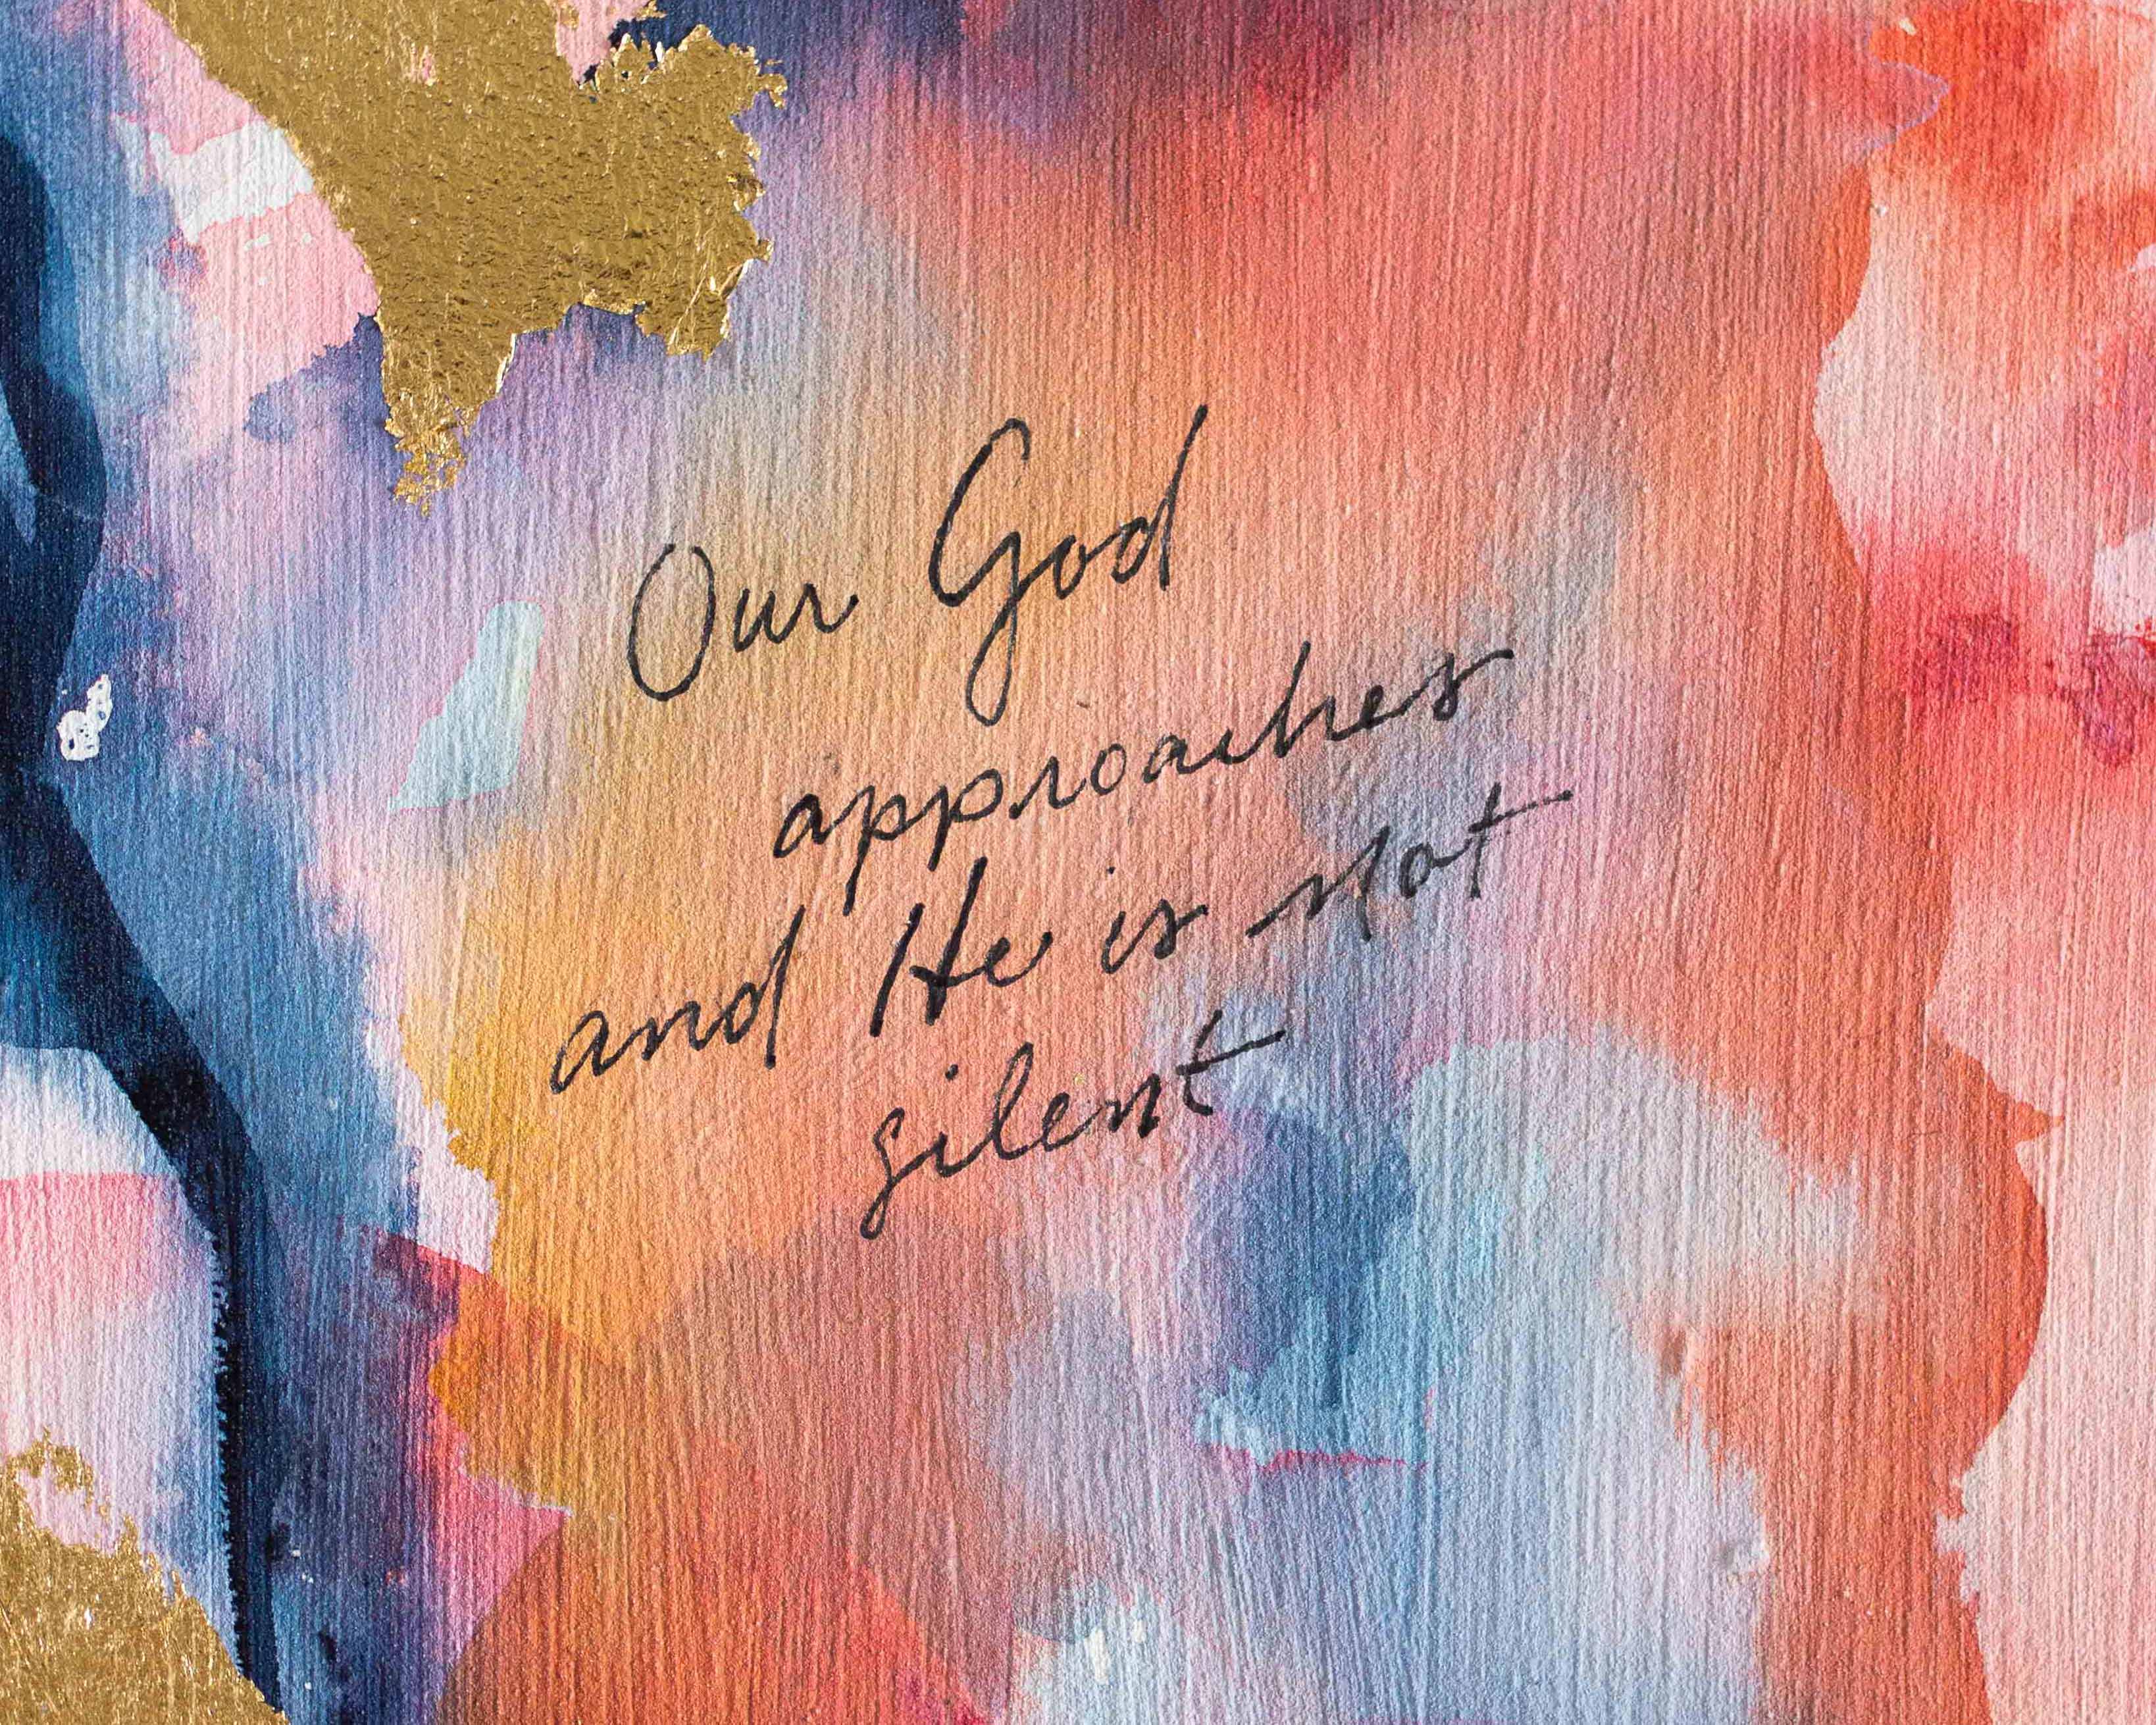 Our God
approaches
and He is not
silent